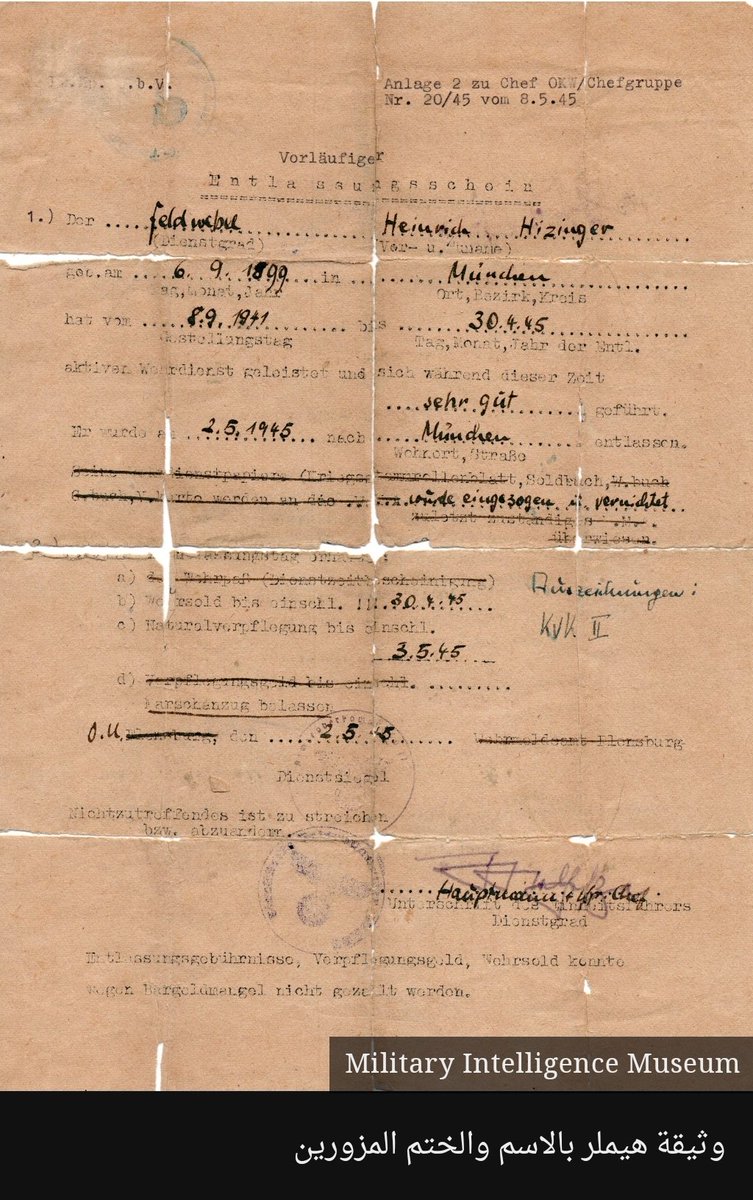 b.V.
Anlage 2 zu Chef OKW/Chefgruppe
Nr. 20/45 vom 8.5.45
Vorläufiger
Entlassungsschein
1.) Der ....Feldwebel.... Heinrich.... Hizinger....
(Dienstgrad) (Vor- u. Zuname)
geb.am ....6. 9. 1899....in ....München....
Tag,Monat,Jahr Ort,Bezirk,Kreis
hat vom ....8.9. 1941.... bis ....30.4.45....
Gestellungstag Tag,Monat,Jahr der Entl.
aktiven Wehrdienst geleistet und sich während dieser Zeit
....sehr gut.... geführt.
Er wurde am ....2.5.1945.... nach ....München.... entlassen.
Wohnort,Straße
Dienstpapiere Soldbuch, W.buch
werden an das wurde eingezogen u. vernichtet
zuletzt zuständige
überwiesen.
a) Wehrpaß (Dienstzeitbescheinigung)
b) Wehrsold bis einschl. 30.4.45
Auszeichnungen:
KVK II
c) Naturalverpflegung bis einschl.
3.5.45
d) Verpflegungsgeld bis einschl. ........
Marschanzug belassen
O.U., Flensburg, den ....2.5.45.... Wehrmeldeamt Flensburg
Dienstsiegel
Nichtzutreffendes ist zu streichen
bzw. abzuändern.
Hauptmann u. Chef
Unterschrift des Einheitsführers
Dienstgrad
Entlassungsgebührnisse, Verpflegungsgeld, Wehrsold konnte
wegen Bargeldmangel nicht gezahlt werden.
Military Intelligence Museum
وثيقة هيملر بالاسم والختم المزورين